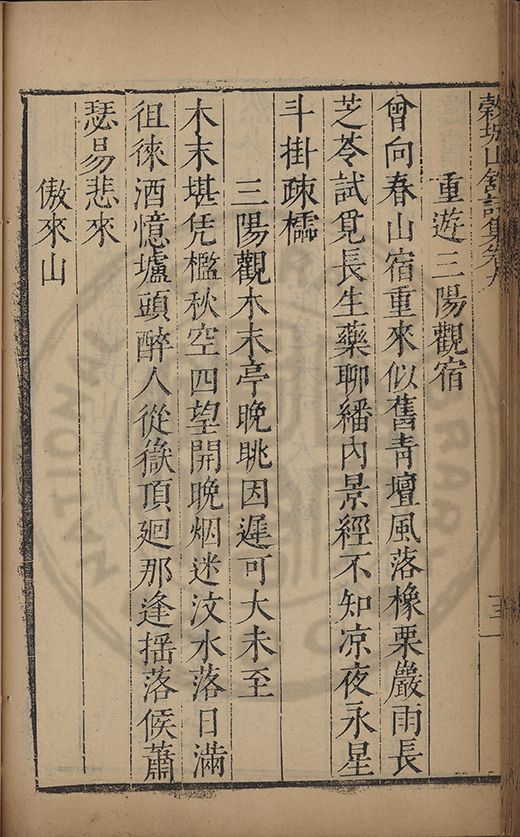 穀城山館詩集卷九
重遊三陽觀宿
曾向春山宿重來似舊青壇風落橡栗巖雨長
芝苓試覓長生藥聊繙內景經不知凉夜永星
斗掛疎櫺
三陽觀木末亭晚眺因遲可大未至
木末堪凭檻秋空四望開晚烟迷汶水落日滿
徂徠酒憶壚頭醉人從嶽頂廻那逢搖落候蕭
瑟易悲來
傲來山